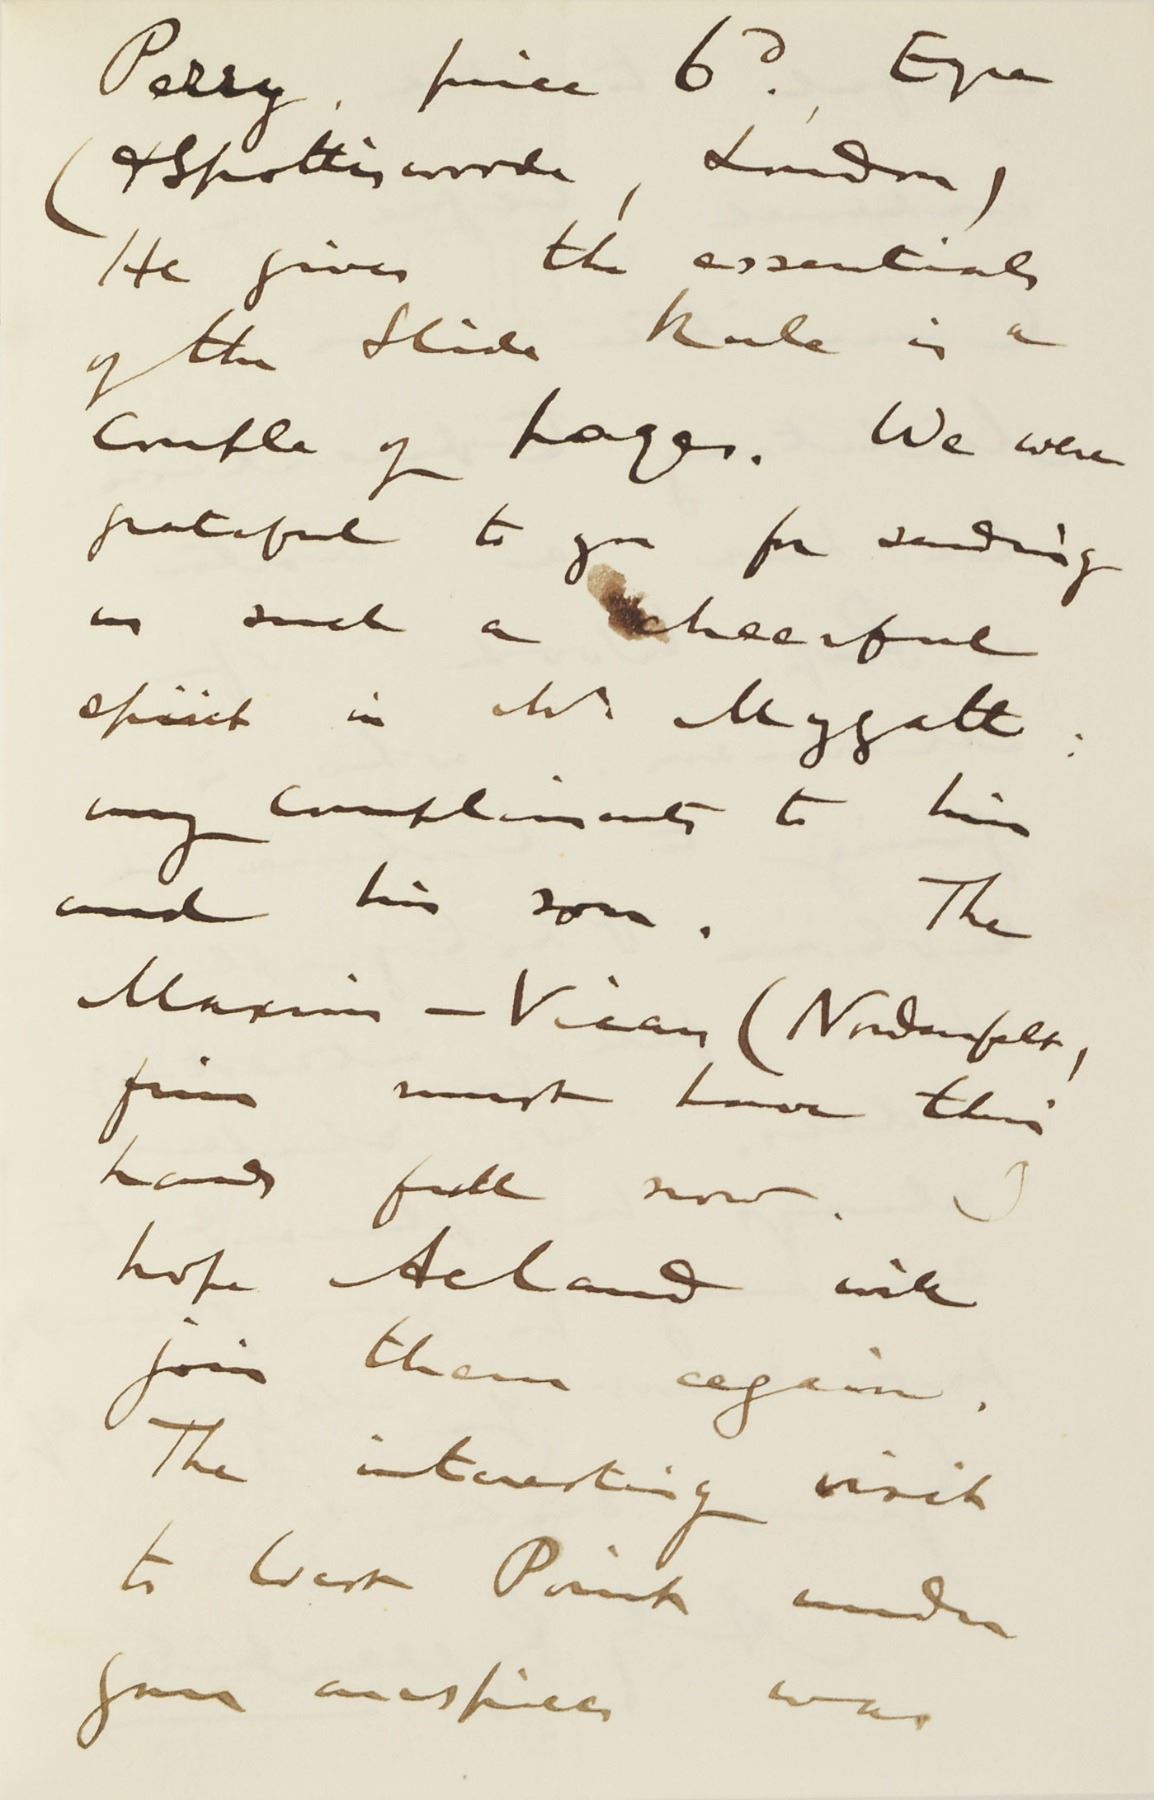 Perry, price 6d., Eyre
(& Spottiswoode, London)
He gives the essentials
of the Slide Rule in a
couple of pages. We were
grateful to you for sending
us such a cheerful
spirit in Mr Mygatt:
my compliments to him
and his son. The
Maxim-Vicars (Nordenfelt,
firm must have this
hands full now. I
hope Acland will
join them again.
The interesting visit
to West Point under
your auspices was